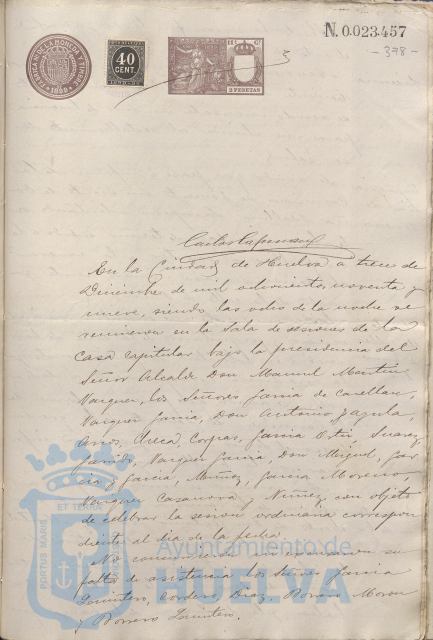 N. 0.023.457
- 378 -
FABRICA NACIONAL DE LA MONEDA Y TIMBRE
1899
40
CENT.
2 PESETAS
En la Ciudad de Huelva a trece de
Diciembre de mil ochocientos noventa y
nueve, siendo las ocho de la noche se
reunieron en la Sala de sesiones de la
Casa capitular bajo la presidencia del
Señor Alcalde Don Manuel Martin
Vazquez, los Señores Garcia de
Vazquez Garcia, Don Antonio Jagula,
Checa, Corpas, Garcia Ortiz, Suarez
Vazquez Garcia Don Miguel, Gar
cia y Garcia, Muñoz, Garcia Moreno,
Vazquez Casanova y Nuñez, con objeto
de celebrar la sesion ordinaria correspon
diente al dia de la fecha.
No su
falta de asistencia los Señores Garcia
Quintero, Cordero, Diaz, Borrero Moron
y Borrero Quintero.
ET TERRE
PORTUS MARIS
Ayuntamiento de
HUELVA